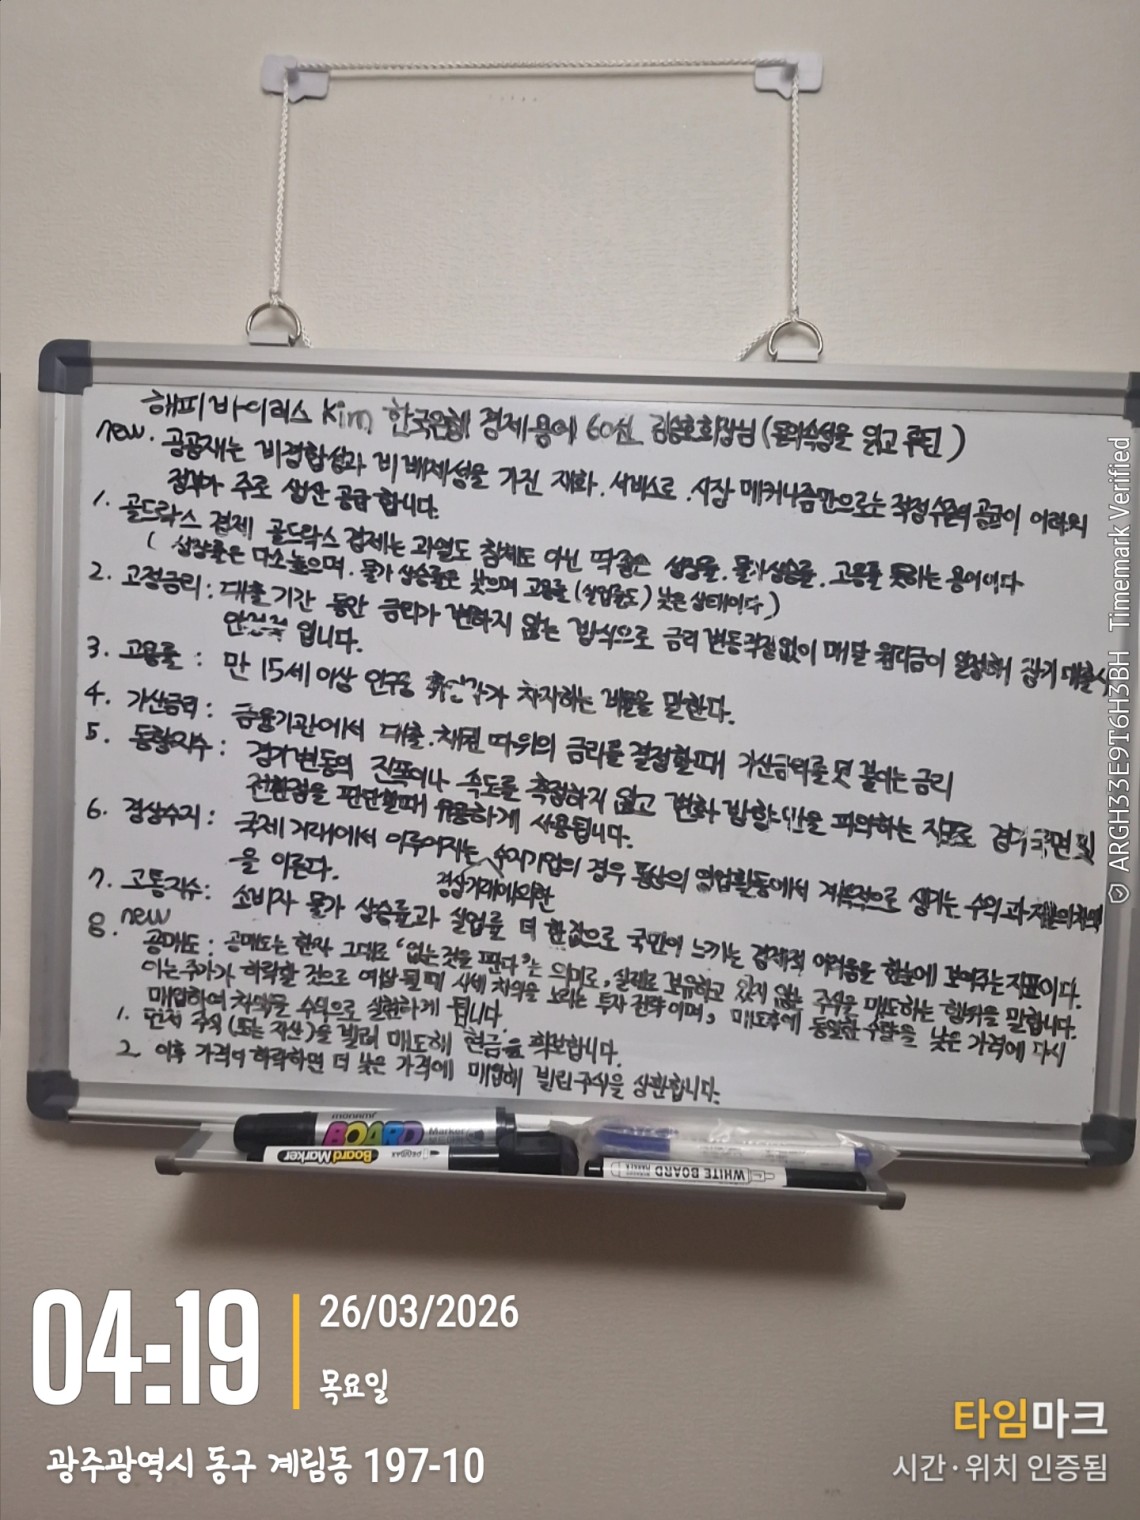 해피바이러스 Kim 한국은행 경제용어 60선 김승호회장님 (돈의속성을 읽고 루틴)
new. 공공재는 비경합성과 비배제성을 가진 재화. 서비스로. 시장 메커니즘만으로는 적정수준의 공급이 어려워
정부가 주로 생산 공급합니다.
1. 골드락스 경제 골드락스 경제는 과열도 침체도 아닌 딱좋은 성장률. 물가상승률. 고용률 뜻하는 용어이다
( 성장률은 다소높으며. 물가상승률은 낮으며 고용률(실업률도) 낮은 상태이다)
2. 고정금리: 대출기간 동안 금리가 변하지 않는 방식으로 금리변동걱정없이 매달 원리금이 일정해 장기대출시
입니다.
3. 고용률 : 만 15세이상 인구중 차지하는 비율을 말한다.
4. 가산금리 : 금융기관에서 대출.채권 따위의 금리를 결정할때 가산금리를 덧붙이는 금리
5. 동향지수 : 경기변동의 진폭이나 속도를 측정하지 않고 변화 방향만을 파악하는 지표로 경기국면의
전환점을 판단할때 유용하게 사용됩니다.
6. 경상수지 : 국제거래에서 이루어지는 수지기업의 경우 통상의 영업활동에서 계속적으로 생기는 수의과 지불의차액
을 이른다. 경상거래에의한
7. 고통지수: 소비자 물가 상승률과 실업률 더한값으로 국민이 느끼는 경제적 어려움을 한눈에 보여주는지표이다.
8. new
공매도 : 공매도는 한자 그대로 '없는 것을 판다'는 의미로, 실제로 보유하고 있지 않는 주식을 매도하는 행위을 말합니다.
이는주가가 하락할 것으로 예상될때 시세 차익을 노리는 투자전략이며, 매도후에 동일한수량을 낮은 가격에 다시
매입하여 차익을 수익으로 실현하게 됩니다.
1. 먼저 주식(또는 자산)을 빌려 매도해 현금을 확보합니다.
2. 이후 가격이 하락하면 더 낮은 가격에 매입해 빌린주식을 상환합니다.
monami
BOARD Marker
BoardMarker
WHITE BOARD
04:19
26/03/2026
목요일
광주광역시 동구 계림동 197-10
타임마크
시간·위치 인증됨
ARGH33E9T6H3BH Timemark Verified